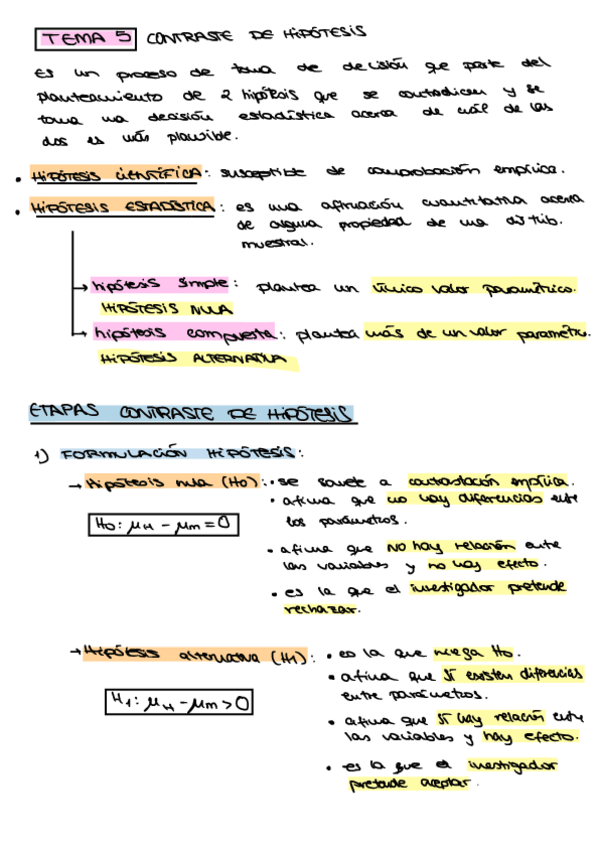 TEMA 5 CONTRASTE DE HIPÓTESIS
Es un proceso de toma de decisión que parte del
planteamiento de 2 hipótesis que se contradicen y se
toma una decisión estadística acerca de cuál de las
dos es más plausible.
• HIPÓTESIS CIENTÍFICA: susceptible de comprobación empírica.
• HIPÓTESIS ESTADÍSTICA: es una afirmación cuantitativa acerca
de alguna propiedad de una distrib.
muestral.
→ hipótesis simple: plantea un único valor paramétrico.
HIPÓTESIS NULA
→ hipótesis compuesta: plantea más de un valor paramétri.
HIPÓTESIS ALTERNATIVA
ETAPAS CONTRASTE DE HIPÓTESIS
1) FORMULACIÓN HIPÓTESIS:
→ Hipótesis nula (H0): • se somete a contrastación empírica.
• afirma que no hay diferencias entre
los parámetros.
H0: μH - μm = 0
• afirma que NO hay relación entre
las variables y no hay efecto.
• es la que el investigador pretende
rechazar.
→ Hipótesis alternativa (H1): • es la que niega H0.
• afirma que SÍ existen diferencias
entre parámetros.
H1: μH - μm > 0
• afirma que SÍ hay relación entre
las variables y hay efecto.
• es la que el investigador
pretende aceptar.